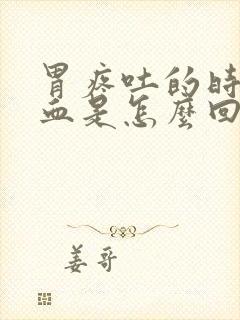 胃疼吐的時
血是怎麼回
姜哥